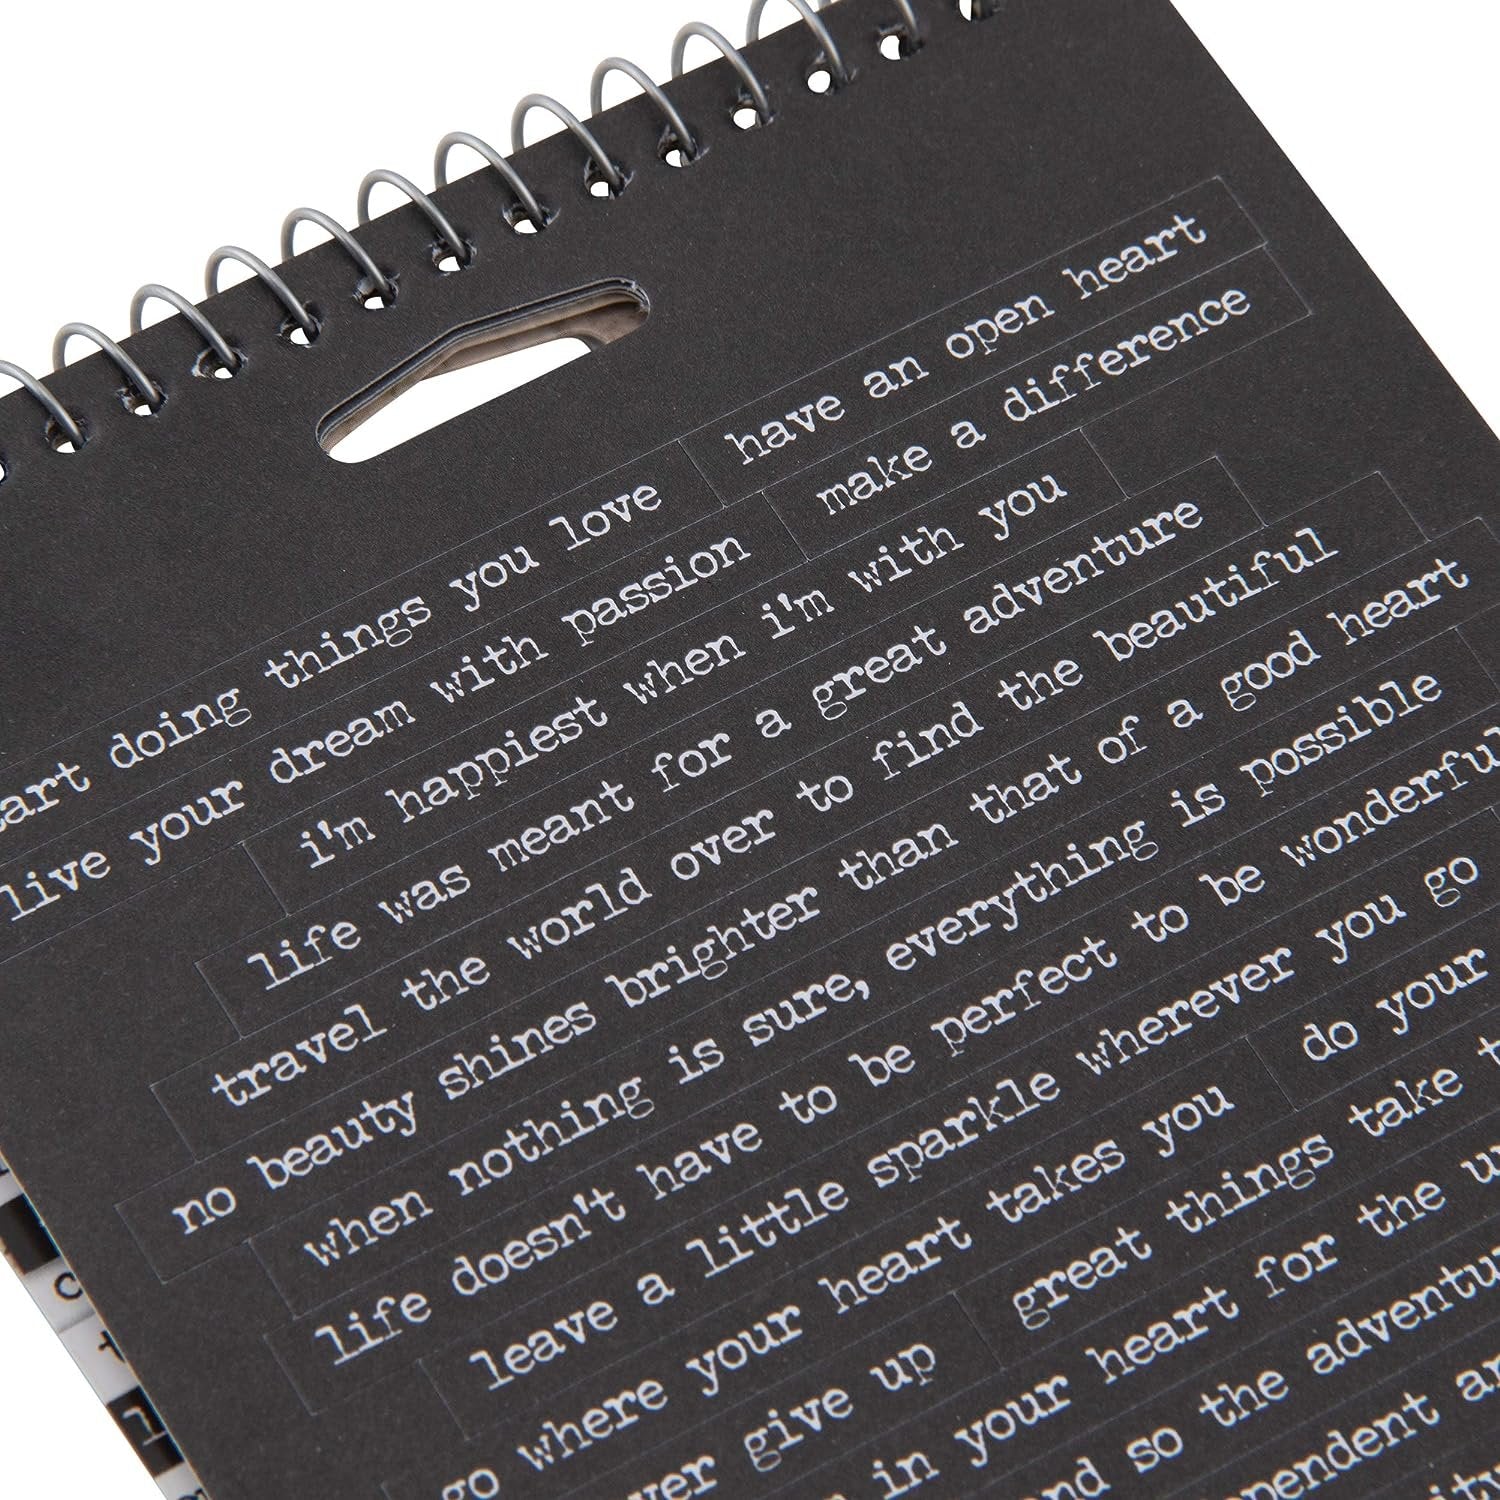 doing things you love have an open heart
live your dream with passion make a difference
i'm happiest when i'm with you
life was meant for a great adventure
travel the world over to find the beautiful
no beauty shines brighter than that of a good heart
when nothing is sure, everything is possible
life doesn't have to be perfect to be wonderful
leave a little sparkle wherever you go
go where your heart takes you do your
give up great things take
in your heart for the
so the